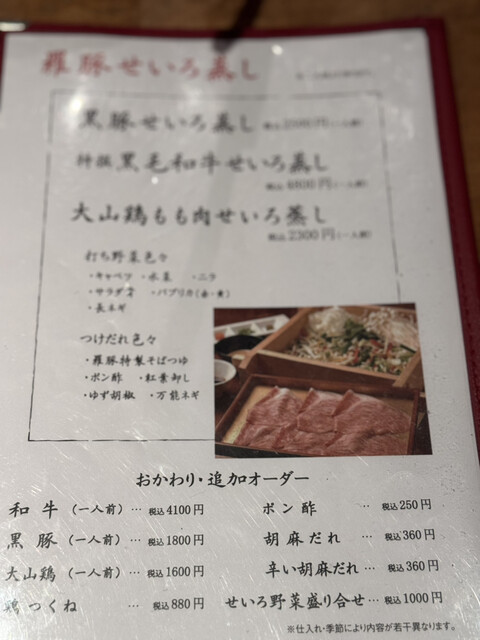 羅豚せいろ蒸し
黒豚せいろ蒸し
特撰黒毛和牛せいろ蒸し
税込 6800円(一人前)
大山鶏もも肉せいろ蒸し
税込 2300円(一人前)
打ち野菜色々
・キャベツ ・水菜 ・ニラ
・サラダ菜 ・パプリカ(赤・黄)
・長ネギ
つけだれ色々
・羅豚特製そばつゆ
・ポン酢 ・紅葉卸し
・ゆず胡椒 ・万能ネギ
おかわり・追加オーダー
和牛(一人前)… 税込 4100円
黒豚(一人前)… 税込 1800円
大山鶏(一人前)… 税込 1600円
鶏つくね … 税込 880円
ポン酢 … 税込 250円
胡麻だれ … 税込 360円
辛い胡麻だれ … 税込 360円
せいろ野菜盛り合せ … 税込 1000円
※仕入れ・季節により内容が若干異なります。